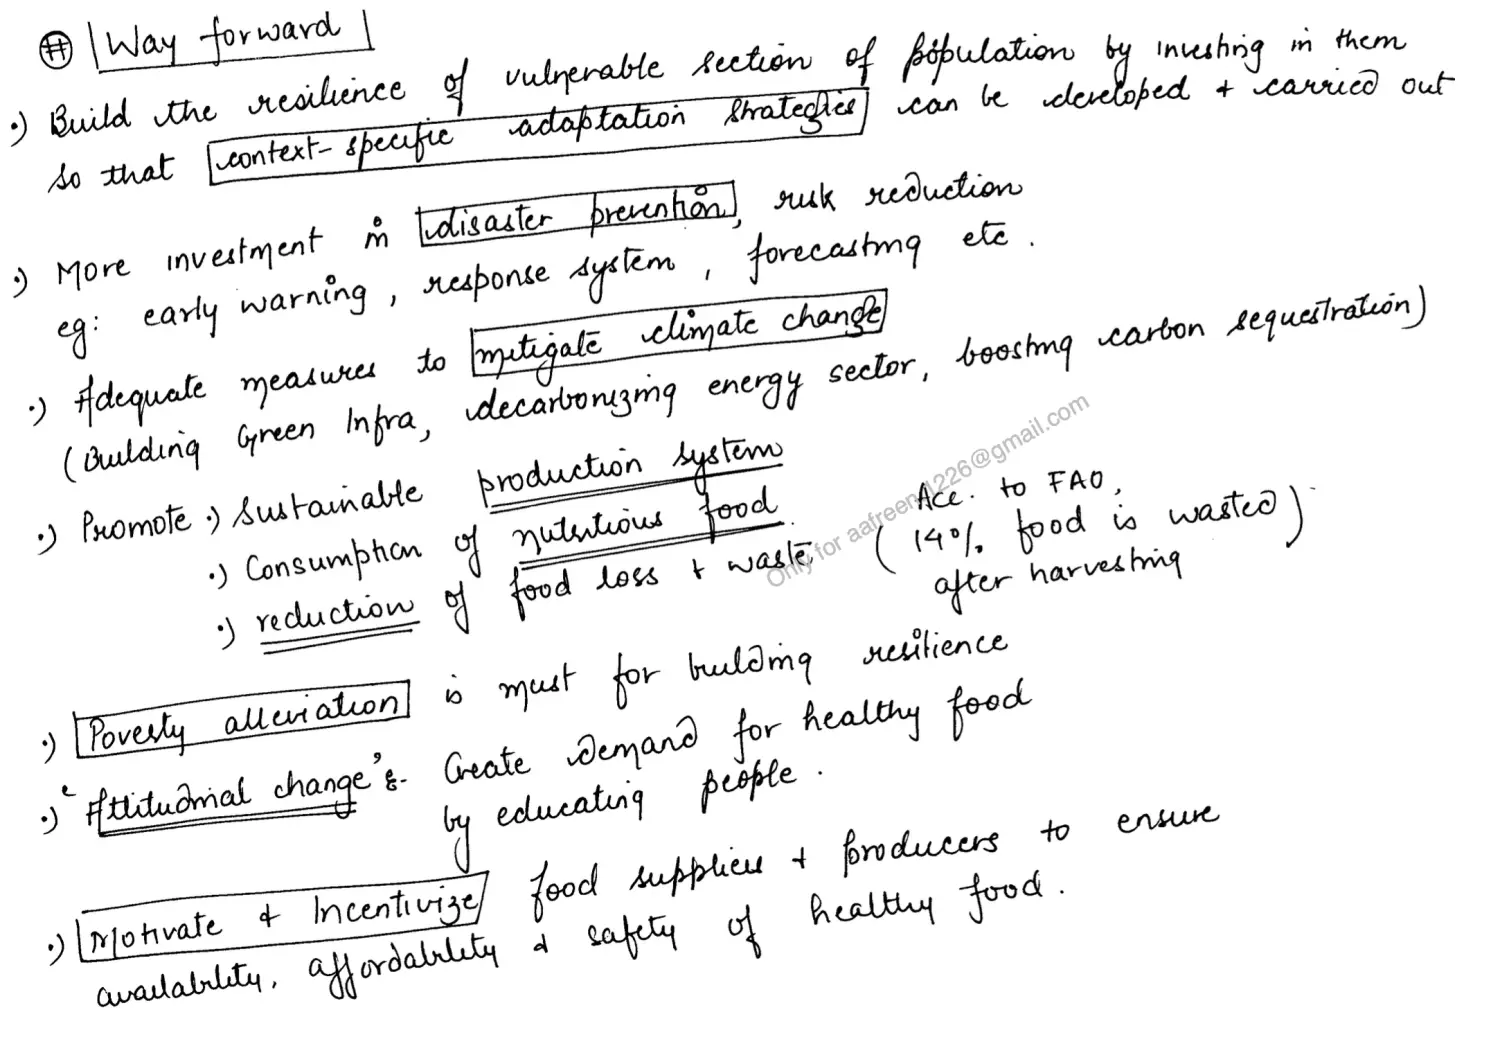 # Way forward
·) Build the resilience of vulnerable section of population by investing in them
so that context-specific adaptation strategies can be developed + carried out
·) More investment in disaster prevention, risk reduction
eg: early warning, response system, forecasting etc.
·) Adequate measures to mitigate climate change
(Building Green Infra, decarbonizing energy sector, boosting carbon sequestration)
·) Promote ·) Sustainable production system
·) Consumption of nutritious food
·) reduction of food loss + waste
(Acc. to FAO,
14% food is wasted
after harvesting)
·) Poverty alleviation is must for building resilience
·) 'Attitudinal change':- Create demand for healthy food
by educating people.
·) Motivate & Incentivize food suppliers + producers to ensure
availability, affordability & safety of healthy food.
Only for aafreen4226@gmail.com